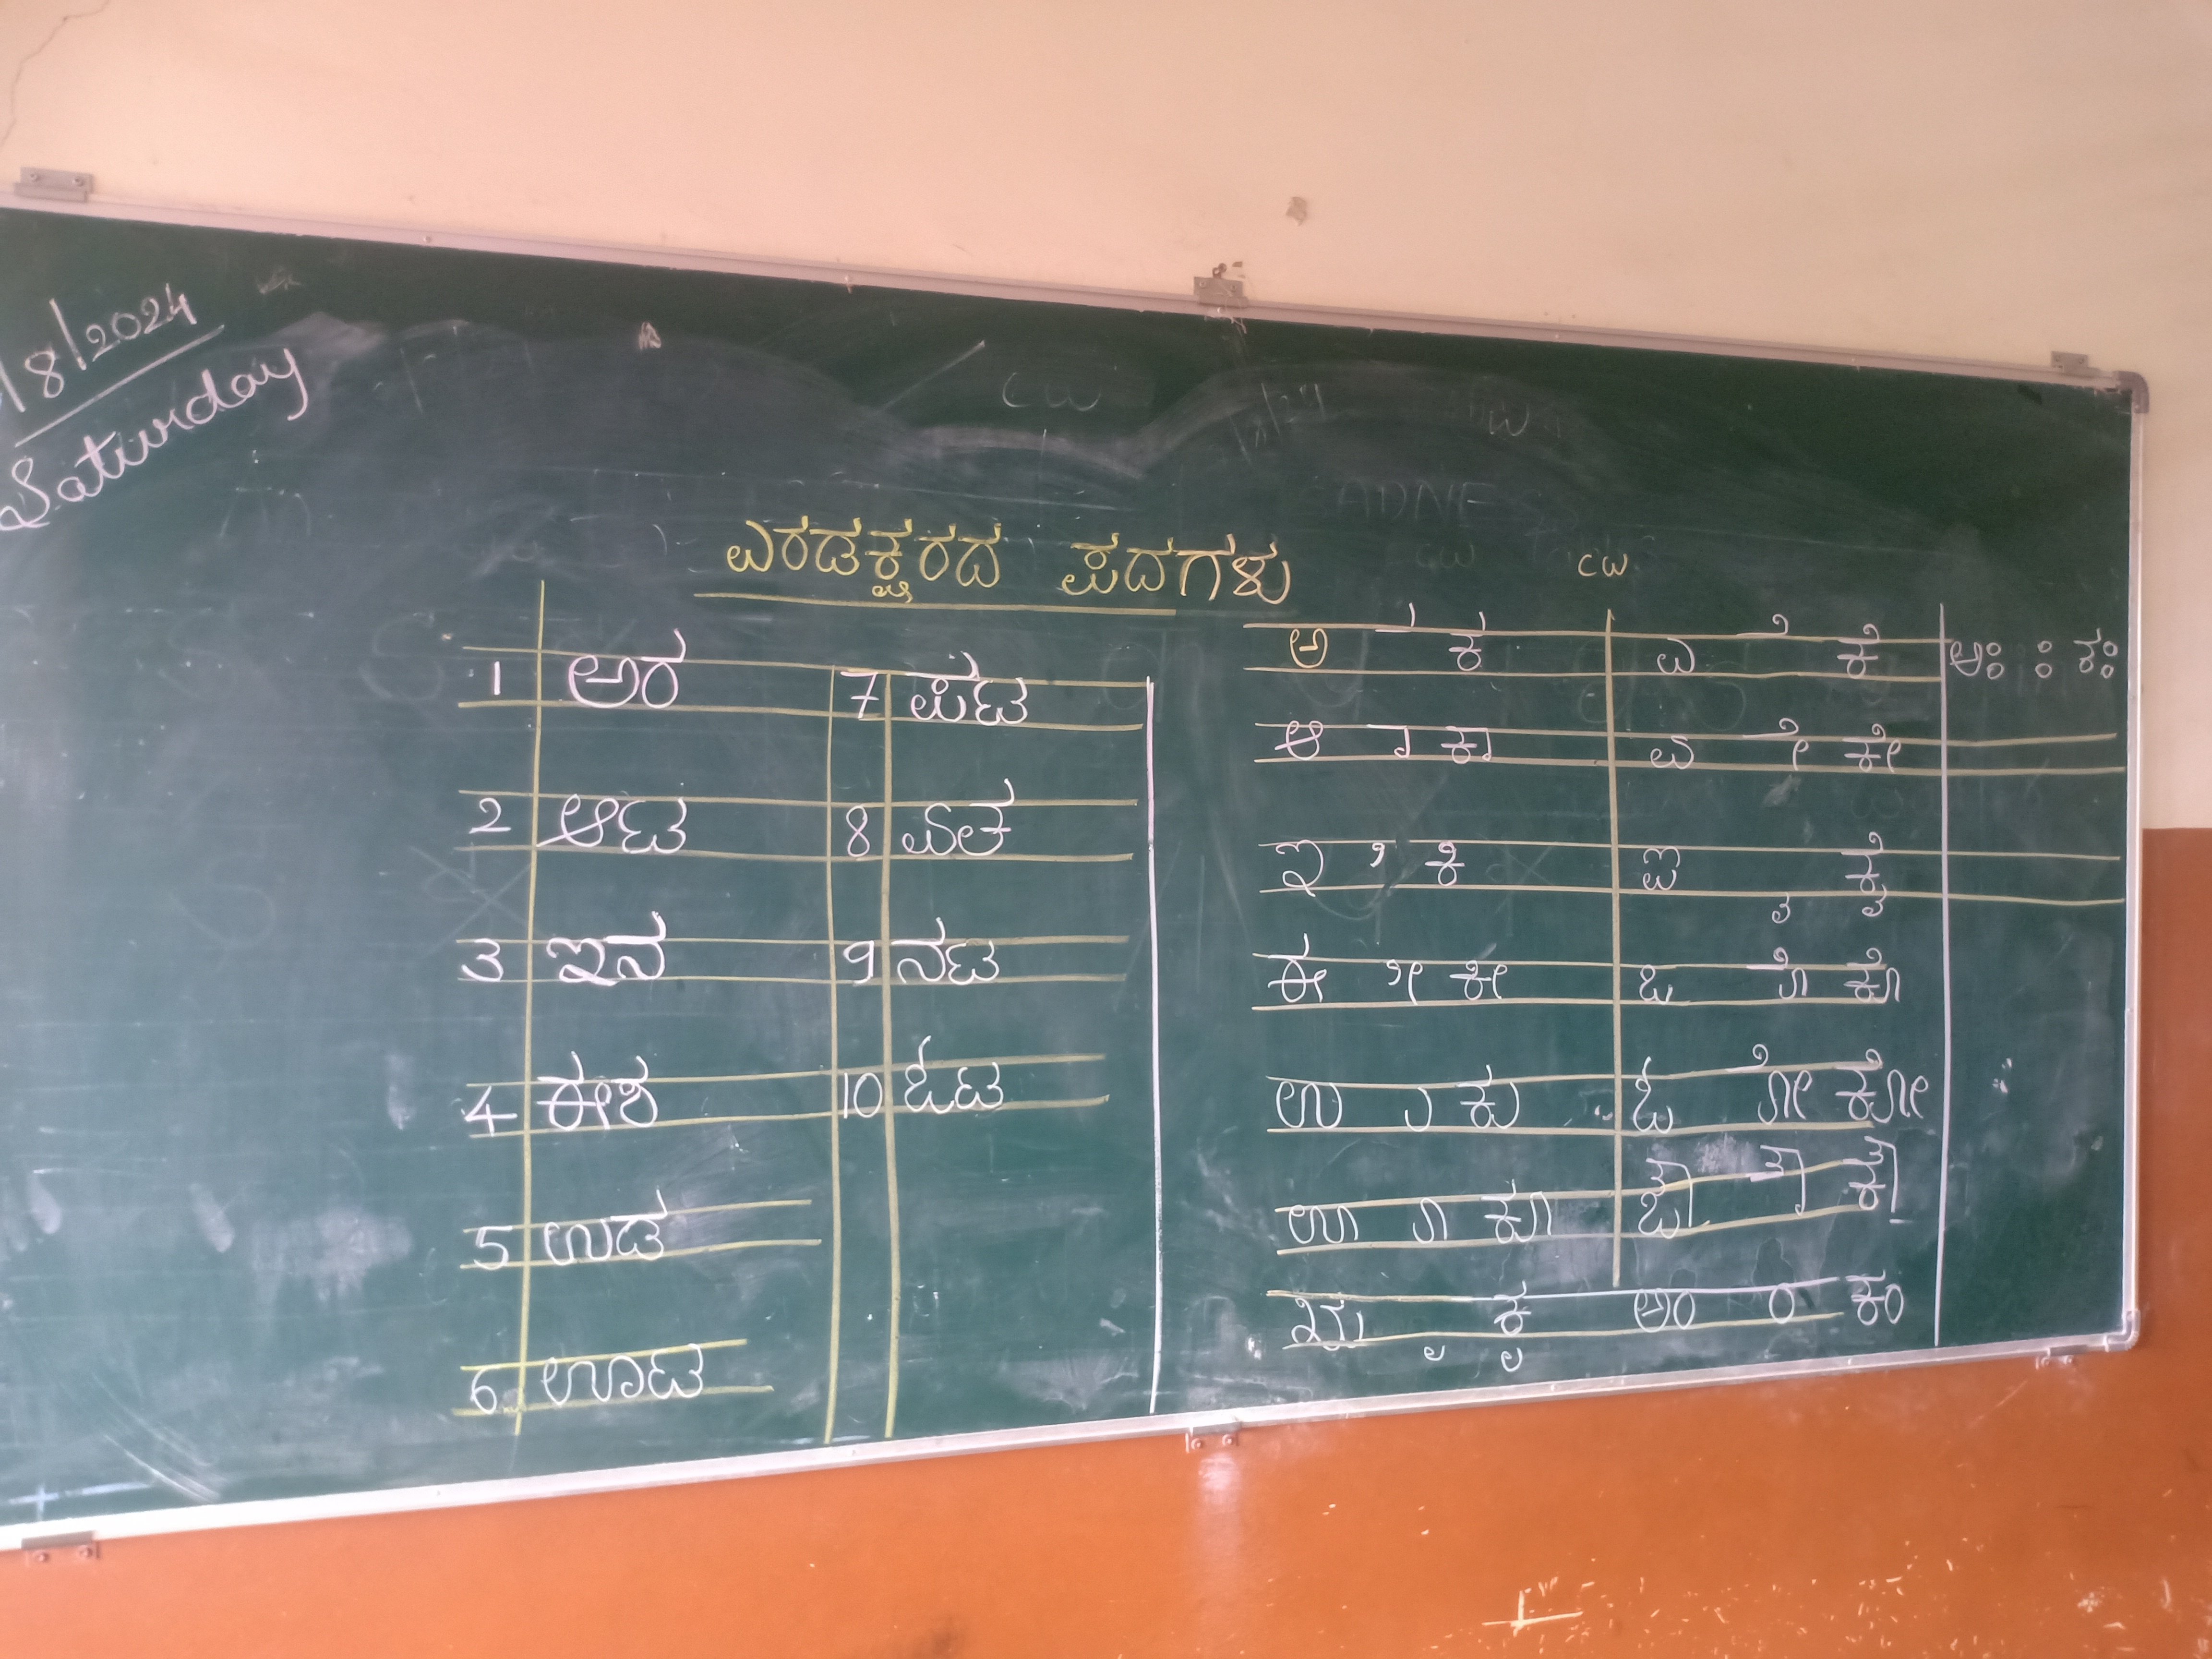 /8/2024
Saturday
ಎರಡಕ್ಷರದ ಪದಗಳು
CW
1 ಅರ
2 ಆಟ
3 ಇನ
4 ಈಶ
5 ಉಡ
6 ಊಟ
7 ಪಟ
8
9 ನಟ
10 ಓಟ
ಅ ಕ
ಆ ಾ ಕಾ
ಇ ಿ ಕಿ
ಈ ೀ ಕೀ
ಉ ು ಕು
ಊ ೂ ಕೂ
ಋ ೃ ಕೃ
ಎ ೆ ಕೆ
ಏ ೇ ಕೇ
ಐ ೈ ಕೈ
ಒ ೊ ಕೊ
ಓ ೋ ಕೋ
ಔ ೌ ಕೌ
ಅಂ ಂ ಕಂ
ಅಃ ಃ ಕಃ